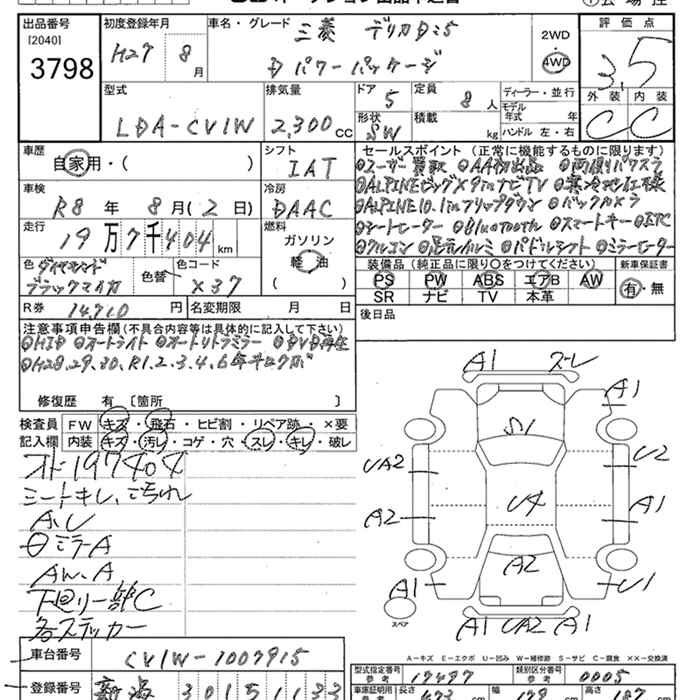 出品番号 初度登録年月 車名・グレード 三菱 デリカD:5 2WD 評価点
[2040] H27年 8月 Dパワーパッケージ 4WD 3.5
3798 外装 内装
型式 排気量 ドア 5 定員 8人 ディーラー・並行 C C
LDA-CV1W 2,300cc 形状 SW 積載 kg モデル年式 年
ハンドル 左・右
車歴 シフト セールスポイント (正常に機能するものに限ります)
自家用・( ) IAT ◎ユーザー買取 ◎AA初出品 ◎両側パワスラ
車検 冷房 ◎ALPINEビッグX9inナビTV ◎寒冷地仕様
R8年 8月(2日) AAC ◎ALPINE10.1inフリップダウン ◎バックカメラ
走行 燃料 ◎シートヒーター ◎Bluetooth ◎スマートキー ◎ETC
19万7千404km ガソリン ◎クルコン ◎パドルシフト ◎ミラーヒーター
色 ダイヤモンド 色替 色コード 軽油 装備品 (純正品に限り○をつけてください) 新車保証書
ブラックマイカ X37 ( ) PS PW ABS エアB AW 有・無
R券 14,710円 名変期限 月 日 SR ナビ TV 本革
注意事項申告欄 (不具合内容等は具体的に記入して下さい) 後日品
◎HID ◎オートライト ◎オートリトラミラー ◎DVD再生
◎H28.29.30.R1.2.3.4.6年キロクボ
修復歴 有 〔箇所 〕
検査員 FW キズ・飛石・ヒビ割・リペア跡・×要
記入欄 内装 キズ・汚レ・コゲ・穴・スレ・キレ・破レ
オド197404
シートキレ、こちれ
A.U
ミラーA
AW.A
下回り一部C
各ステッカー
A1 スレ
A1
S1
UA2 U2
U4
A2 A1
A2
A1 U1
スペア A1 UA2 A1
A-キズ E-エクボ U-凹み W-補修跡 S-サビ C-腐食 ××-交換済
車台番号 CV1W-1007915
登録番号 新潟 301 5 1133
型式指定番号 参考 17497 類別区分番号 参考 0005
車庫証明用 参考 長さ 473cm 幅 179cm 高さ 187cm